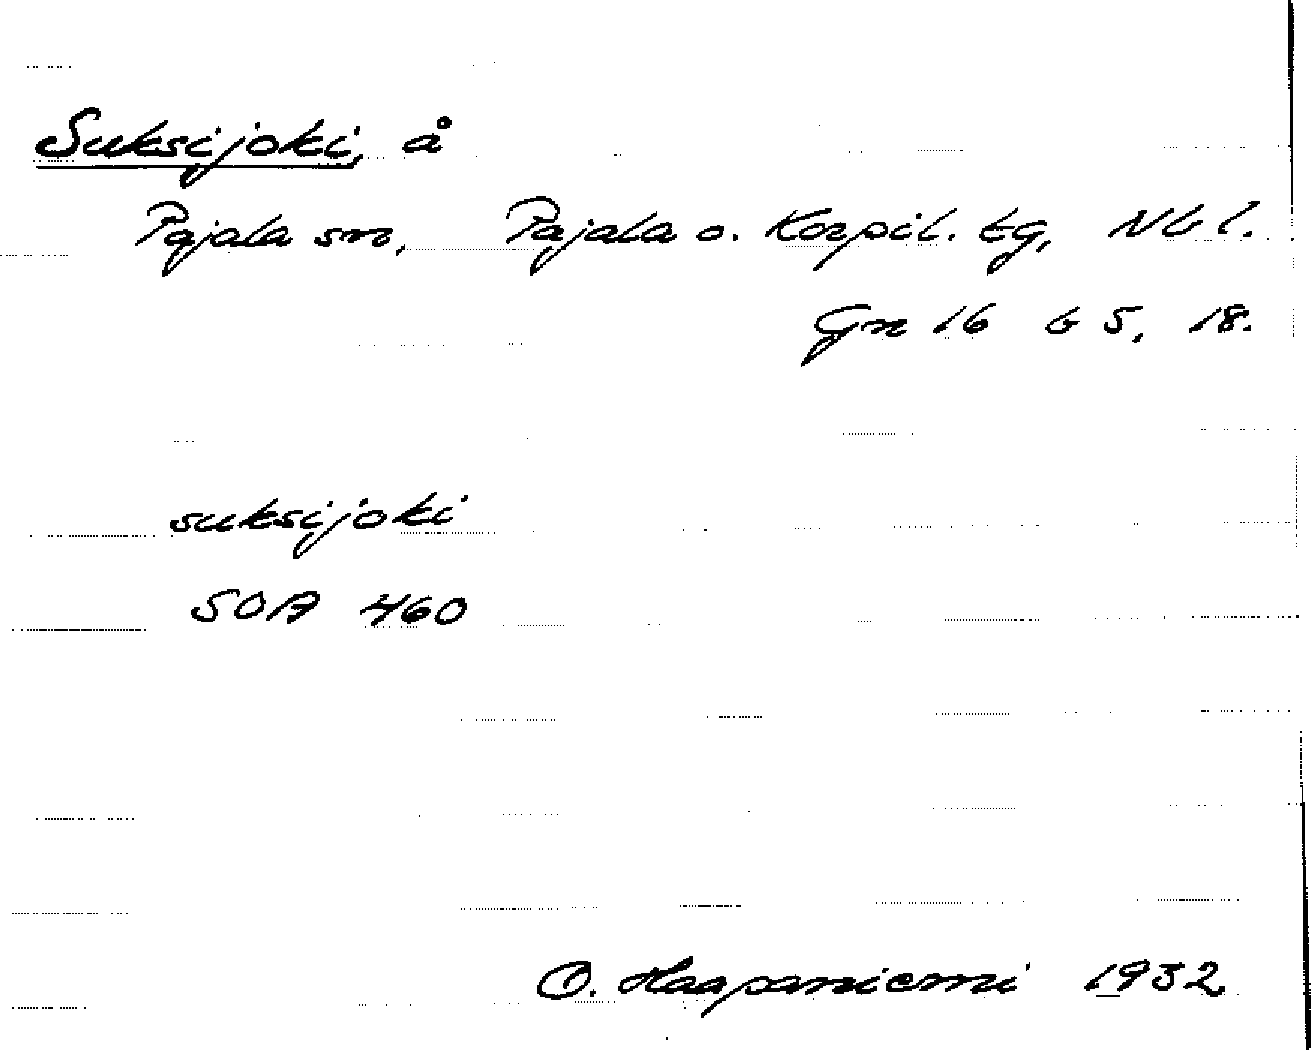 Suksijoki, å
Pajala sn, Pajala o. Korpil. tg, Nb l.
Gn 16 b 5, 18.
suksijoki
SOA 460
O. Haapaniemi 1932